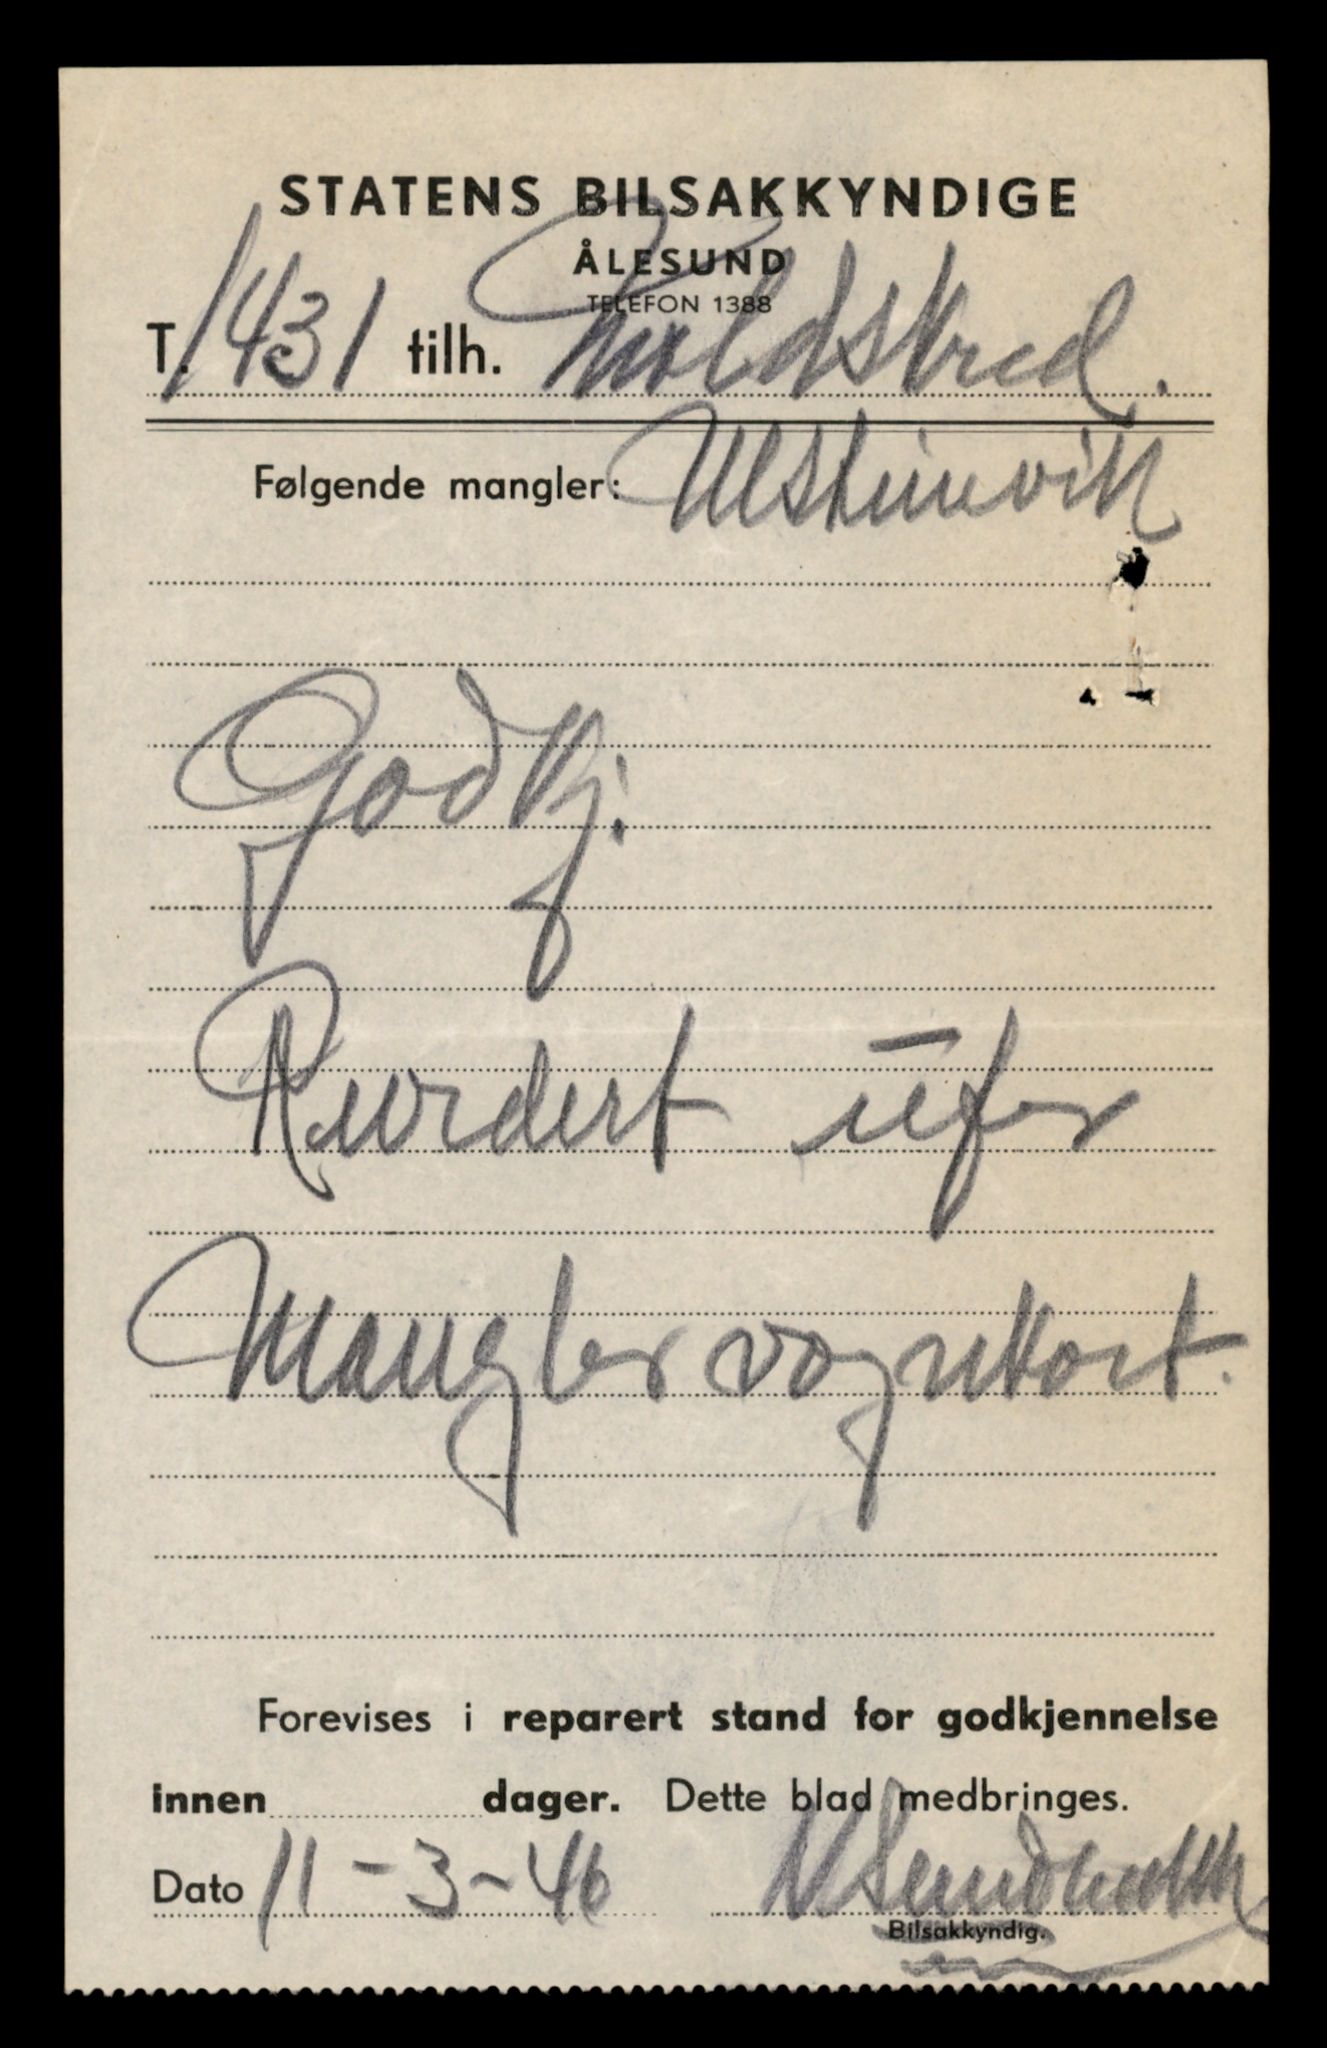 STATENS BILSAKKYNDIGE
ÅLESUND
TELEFON 1388
T. 1431 tilh. Moldskred.
Følgende mangler: Ulsteinvik
Godkj.
Revidert
Mangler vognkort.
Forevises i reparert stand for godkjennelse
innen dager. Dette blad medbringes.
Dato 11-3-46
Bilsakkyndig.